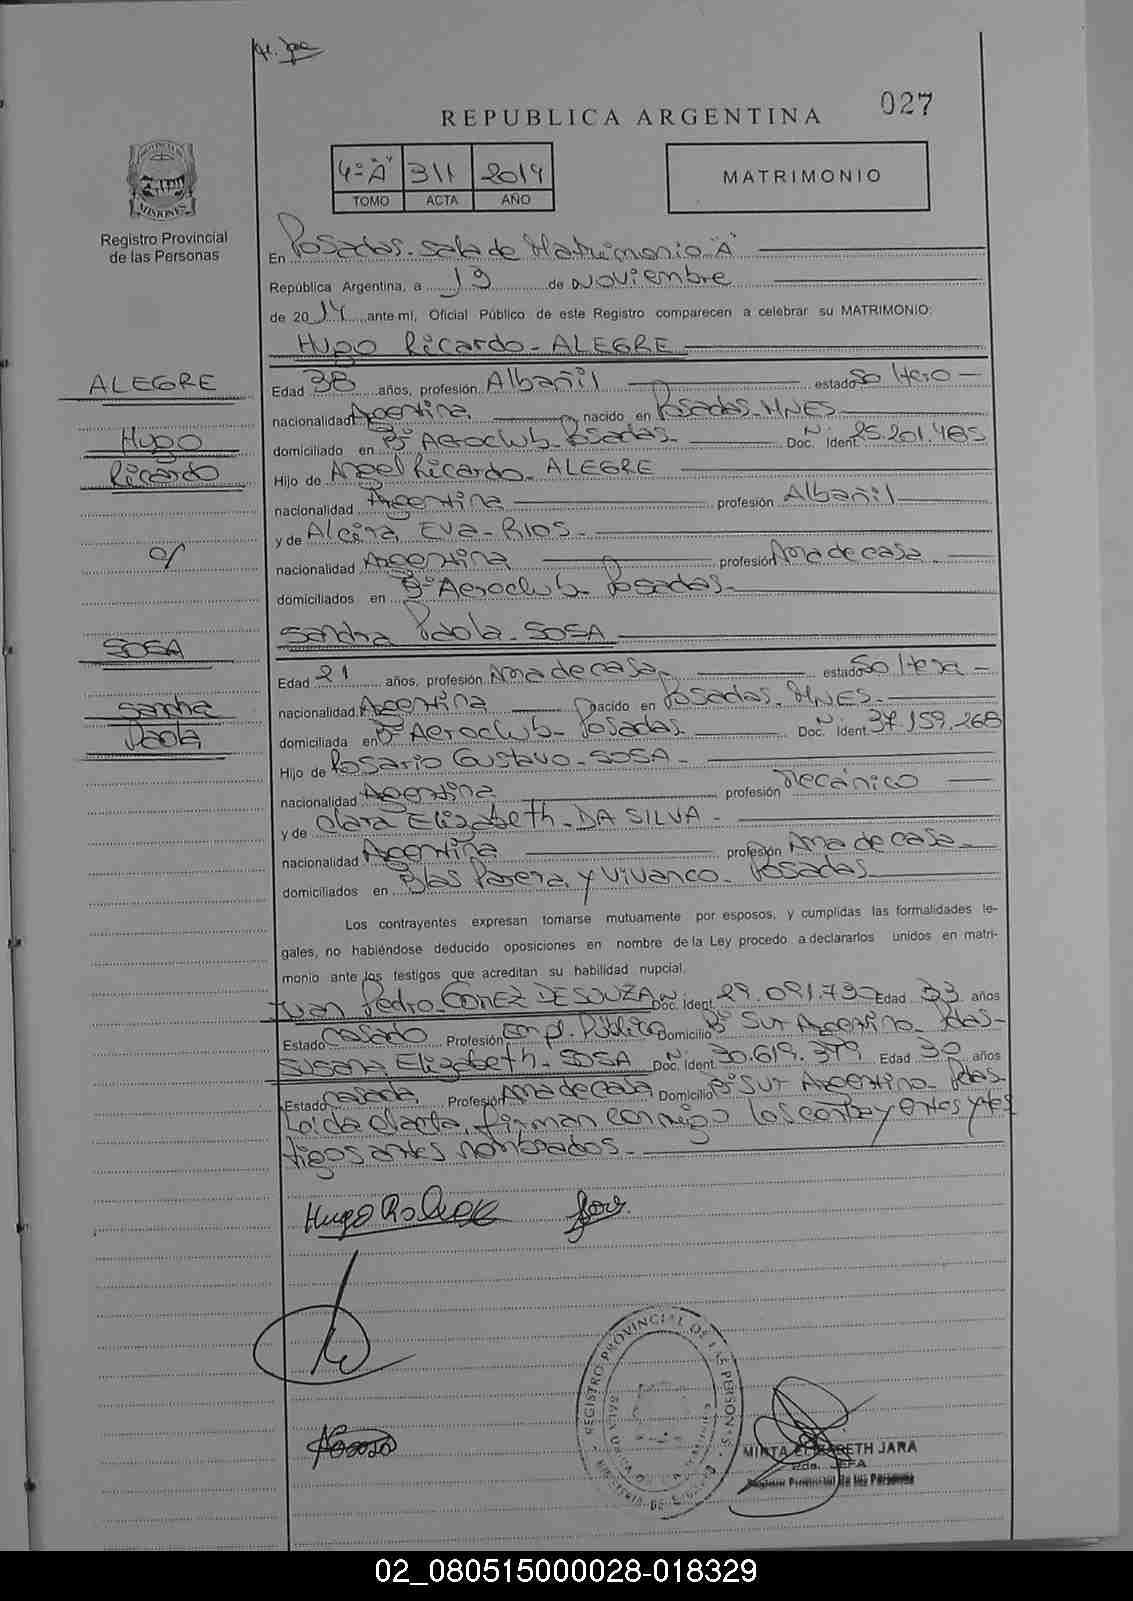 027
REPUBLICA ARGENTINA
4º "A" 311 2014
TOMO ACTA AÑO
MATRIMONIO
PROVINCIA DE MISIONES
Registro Provincial
de las Personas
En Posadas. Sala de Matrimonio "A"
República Argentina, a 19 de Noviembre
de 2014 ante mí, Oficial Público de este Registro comparecen a celebrar su MATRIMONIO:
Hugo Ricardo - ALEGRE
ALEGRE
Hugo
Ricardo
c/
SOSA
Sandra
Paola
Edad 38 años, profesión Albañil estado Soltero
nacionalidad Argentina nacido en Posadas. MNES.
domiciliado en Bº Aeroclub. Posadas. Doc. Ident. Nº 25.201.485
Hijo de Angel Ricardo - ALEGRE
nacionalidad Argentina profesión Albañil
y de Alcira Eva - RIOS -
nacionalidad Argentina profesión Ama de casa.
domiciliados en Bº Aeroclub - Posadas -
Sandra Paola - SOSA
Edad 21 años, profesión Ama de casa. estado Soltera
nacionalidad Argentina nacido en Posadas. MNES.
domiciliada en Bº Aeroclub - Posadas. Doc. Ident. Nº 37.159.268
Hijo de Rosario Gustavo - SOSA -
nacionalidad Argentina profesión Mecánico
y de Clara Elizabeth - DA SILVA -
nacionalidad Argentina profesión Ama de casa.
domiciliados en Blas Parera y Vivanco - Posadas.
Los contrayentes expresan tomarse mutuamente por esposos, y cumplidas las formalidades le-
gales, no habiéndose deducido oposiciones en nombre de la Ley procedo a declararlos unidos en matri-
monio ante los testigos que acreditan su habilidad nupcial.
Juan Pedro - GOMEZ DE SOUZA Doc. Ident. Nº 29.091.730 Edad 33 años
Estado casado Profesión emp. Público Domicilio Bº Sur Argentino - Pdas -
Susana Elizabeth - SOSA Doc. Ident. Nº 30.619.379 Edad 30 años
Estado casada Profesión Ama de casa Domicilio Bº Sur Argentino - Pdas.
Leída el acta, firman conmigo los contrayentes y tes
tigos antes nombrados.
REGISTRO PROVINCIAL DE LAS PERSONAS
MIRTA ELIZABETH JARA
2da. JEFA
Registro Provincial de las Personas
02_080515000028-018329